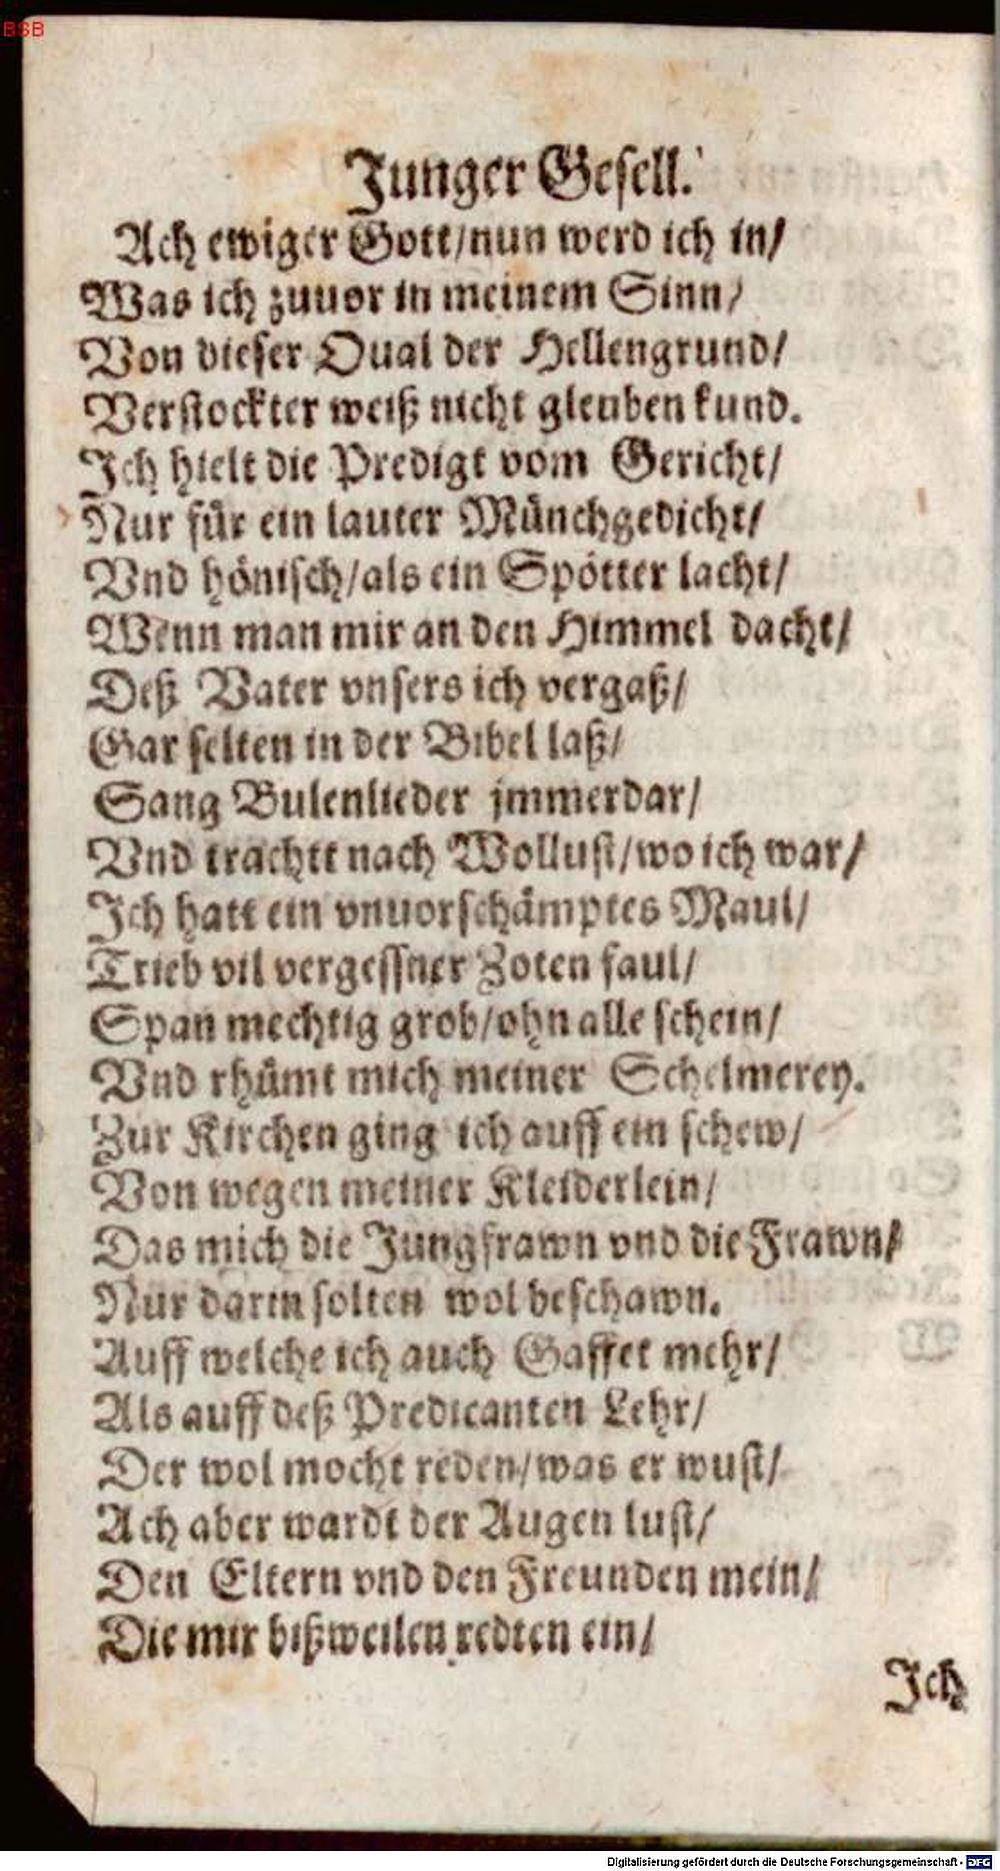 BSB
Junger Gesell.
Ach ewiger Gott/nun werd ich in/
Was ich zuuor in meinem Sinn/
Von dieser Qual der Hellengrund/
Verstockter weiß nicht gleuben kund.
Ich hielt die Predigt vom Gericht/
Nur für ein lauter Münchgedicht/
Vnd hönisch/als ein Spötter lacht/
Wenn man mir an den Himmel dacht/
Deß Vater vnsers ich vergaß/
Gar selten in der Bibel laß/
Sang Bulenlieder jmmerdar/
Vnd trachtt nach Wollust/wo ich war/
Ich hatt ein vnuorschämptes Maul/
Trieb vil vergessner Zoten faul/
Span mechtig grob/ohn alle schein/
Vnd rhümt mich meiner Schelmerey.
Zur Kirchen ging ich auff ein schew/
Von wegen meiner Kleiderlein/
Das mich die Jungfrawn vnd die Frawn/
Nur darin solten wol beschawn.
Auff welche ich auch Gaffet mehr/
Als auff deß Predicanten Lehr/
Der wol mocht reden/was er wust/
Ach aber wardt der Augen lust/
Den Eltern vnd den Freunden mein/
Die mir bißweilen redten ein/
Ich
Digitalisierung gefördert durch die Deutsche Forschungsgemeinschaft - DFG